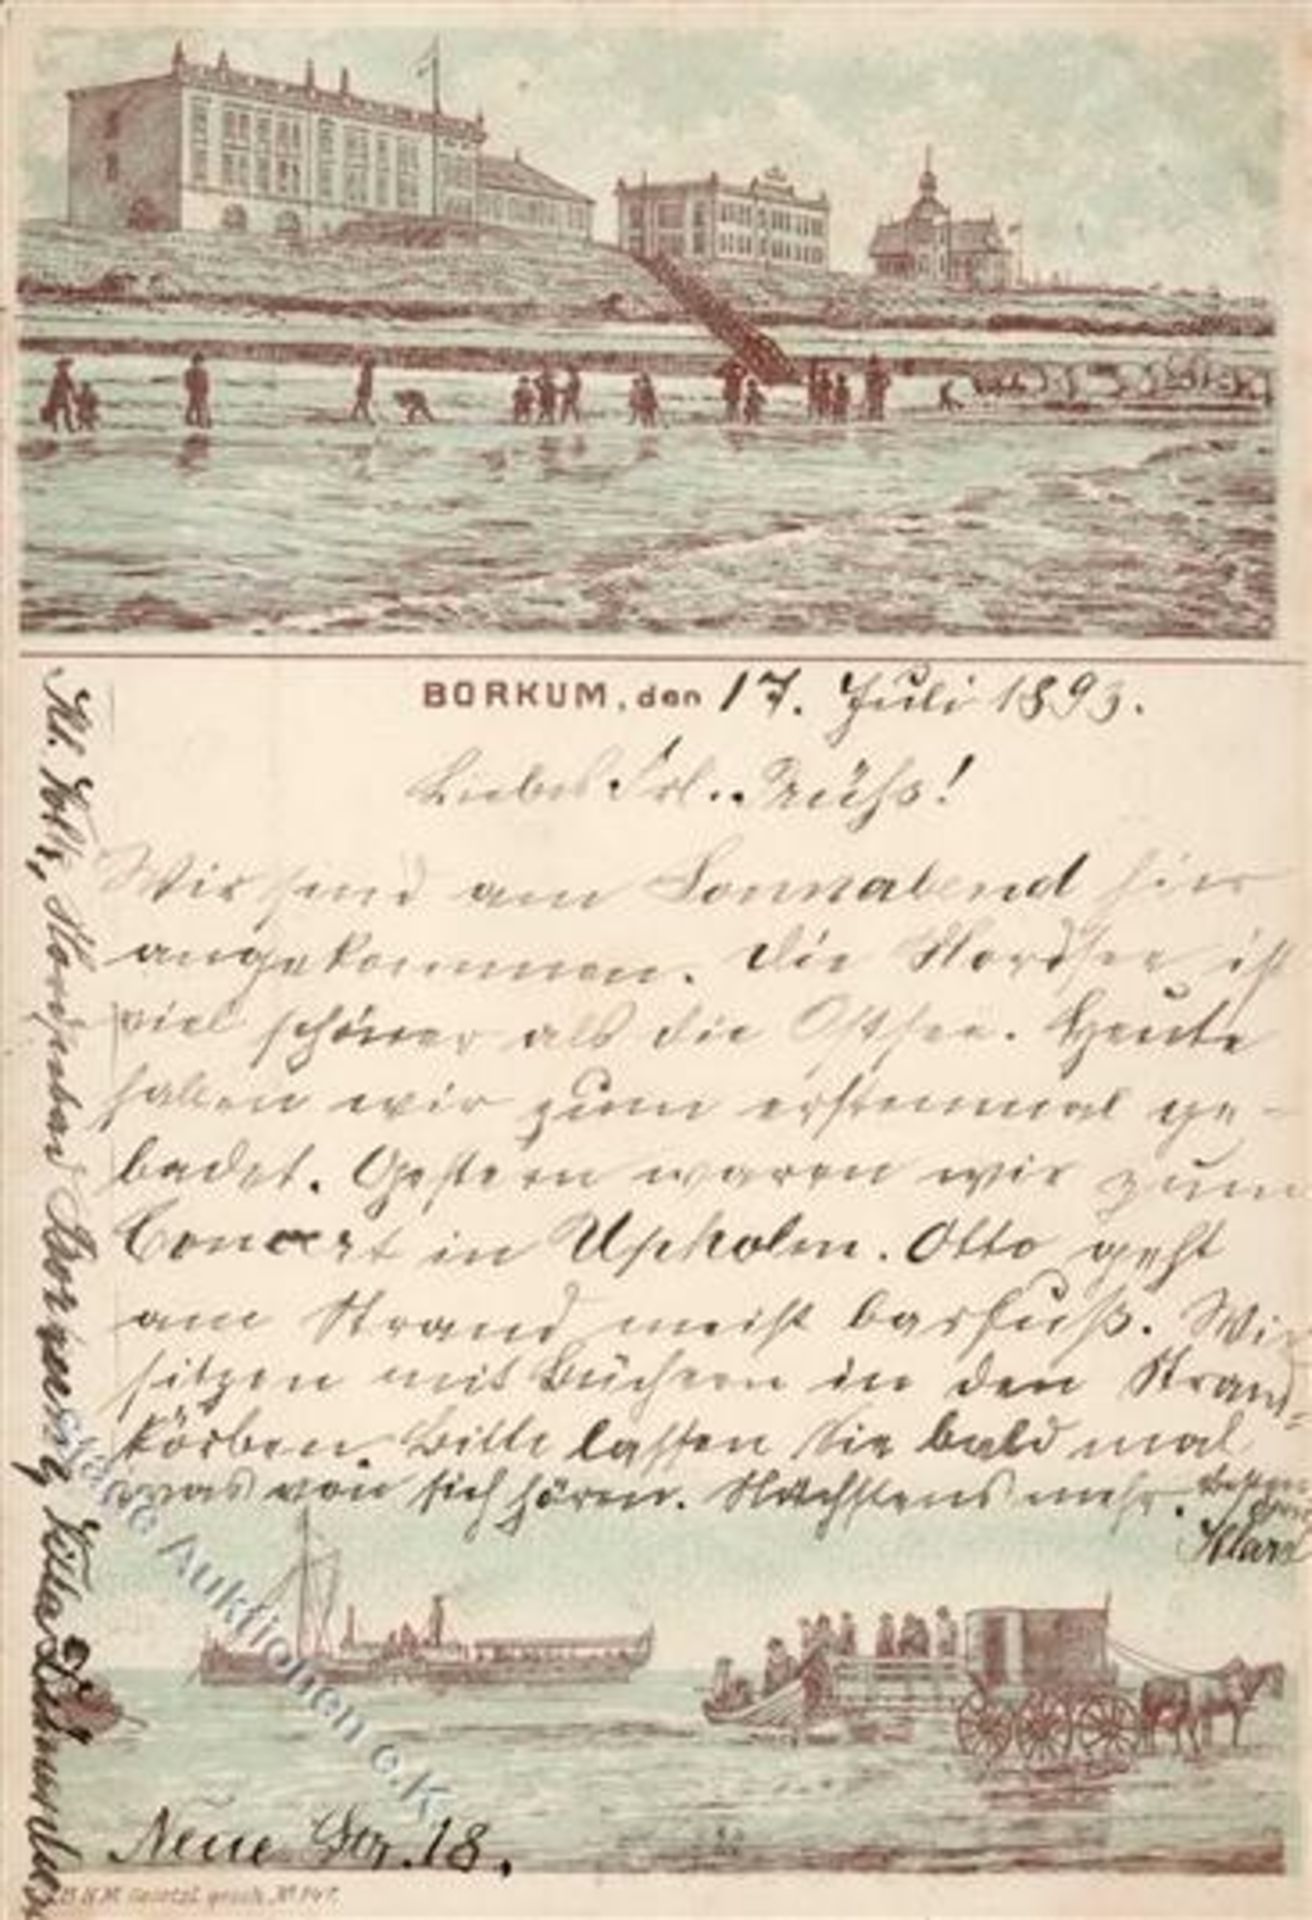 BORKUM, den 17. Juli 1893.
Liebes Frl.
Wir sind am Sonnabend hier
angekommen. Die Nordsee ist
viel schöner als die Ostsee. Heute
haben wir zum erstenmal ge-
badet. Gestern waren wir zum
Concert in Upholm. Otto geht
am Strand meist barfuß. Wir
sitzen mit Büchern in den Strand-
körben. Bitte lassen Sie bald mal
was von sich hören. Nächstens mehr.
Nordseebad Borkum, Villa
Neue Str. 18.
Auktionen e.K.
Gesetzl. gesch. No